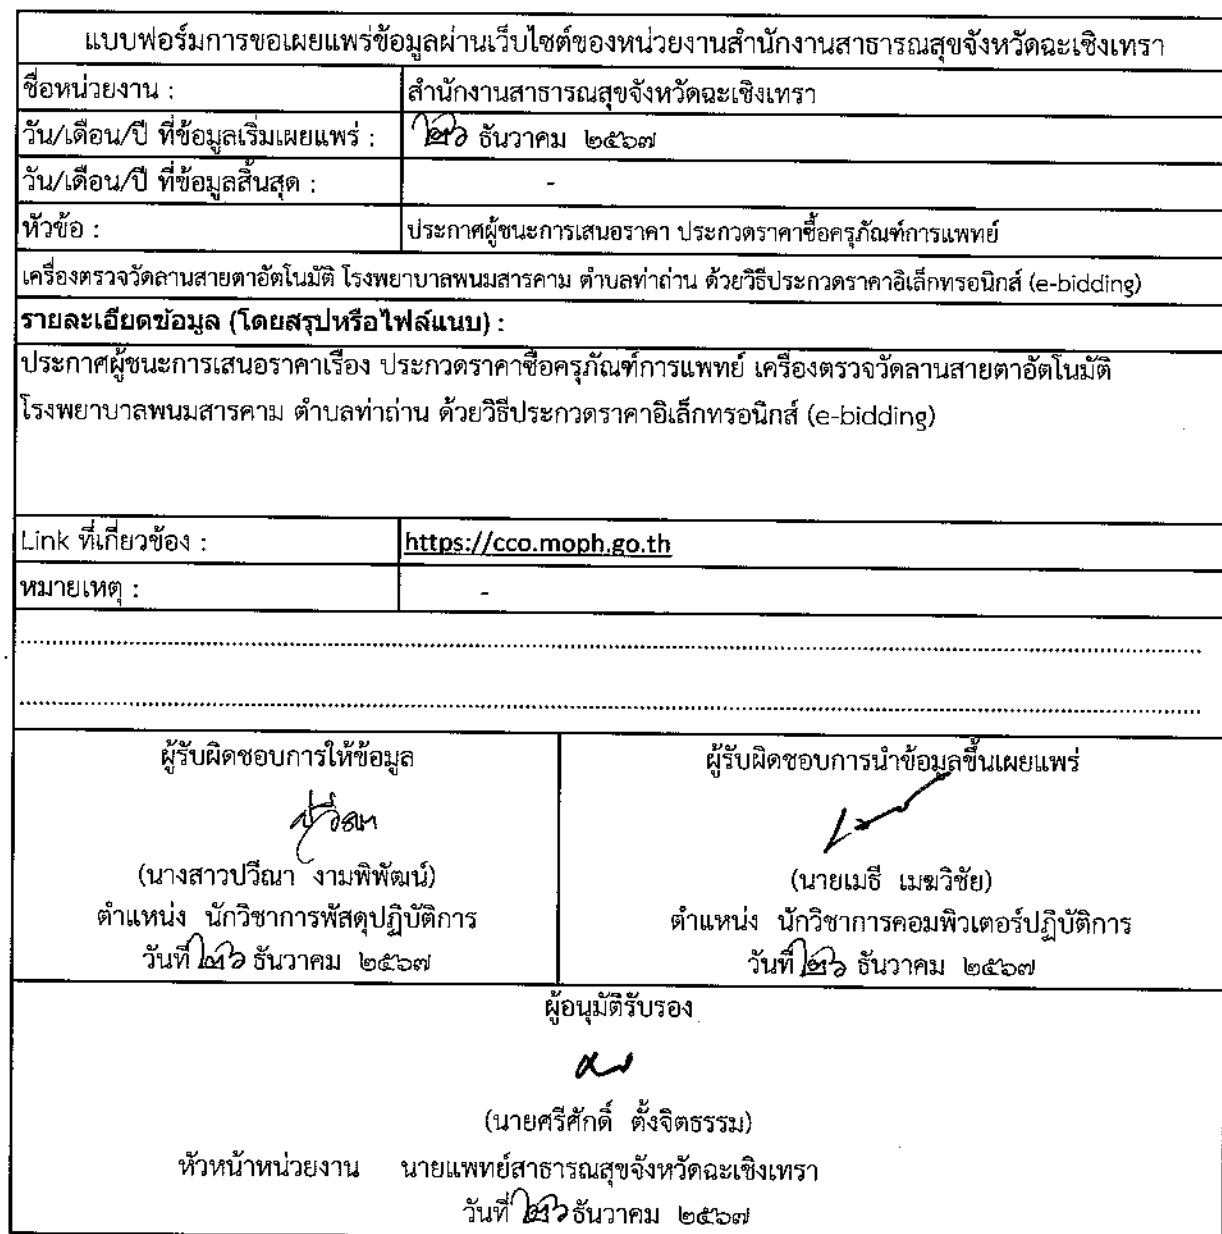 แบบฟอร์มการขอเผยแพร่ข้อมูลผ่านเว็บไซต์ของหน่วยงานสำนักงานสาธารณสุขจังหวัดฉะเชิงเทรา
ชื่อหน่วยงาน : สำนักงานสาธารณสุขจังหวัดฉะเชิงเทรา
วัน/เดือน/ปี ที่ข้อมูลเริ่มเผยแพร่ : ๒๖ ธันวาคม ๒๕๖๗
วัน/เดือน/ปี ที่ข้อมูลสิ้นสุด : -
หัวข้อ : ประกาศผู้ชนะการเสนอราคา ประกวดราคาซื้อครุภัณฑ์การแพทย์
เครื่องตรวจวัดลานสายตาอัตโนมัติ โรงพยาบาลพนมสารคาม ตำบลท่าถ่าน ด้วยวิธีประกวดราคาอิเล็กทรอนิกส์ (e-bidding)
รายละเอียดข้อมูล (โดยสรุปหรือไฟล์แนบ) :
ประกาศผู้ชนะการเสนอราคาเรื่อง ประกวดราคาซื้อครุภัณฑ์การแพทย์ เครื่องตรวจวัดลานสายตาอัตโนมัติ
โรงพยาบาลพนมสารคาม ตำบลท่าถ่าน ด้วยวิธีประกวดราคาอิเล็กทรอนิกส์ (e-bidding)
Link ที่เกี่ยวข้อง : https://cco.moph.go.th
หมายเหตุ : -
ผู้รับผิดชอบการให้ข้อมูล
ปวีณา
(นางสาวปวีณา งามพิพัฒน์)
ตำแหน่ง นักวิชาการพัสดุปฏิบัติการ
วันที่ ๒๖ ธันวาคม ๒๕๖๗
ผู้รับผิดชอบการนำข้อมูลขึ้นเผยแพร่
(นายเมธี เมฆวิชัย)
ตำแหน่ง นักวิชาการคอมพิวเตอร์ปฏิบัติการ
วันที่ ๒๖ ธันวาคม ๒๕๖๗
ผู้อนุมัติรับรอง
(นายศรีศักดิ์ ตั้งจิตธรรม)
หัวหน้าหน่วยงาน นายแพทย์สาธารณสุขจังหวัดฉะเชิงเทรา
วันที่ ๒๖ ธันวาคม ๒๕๖๗